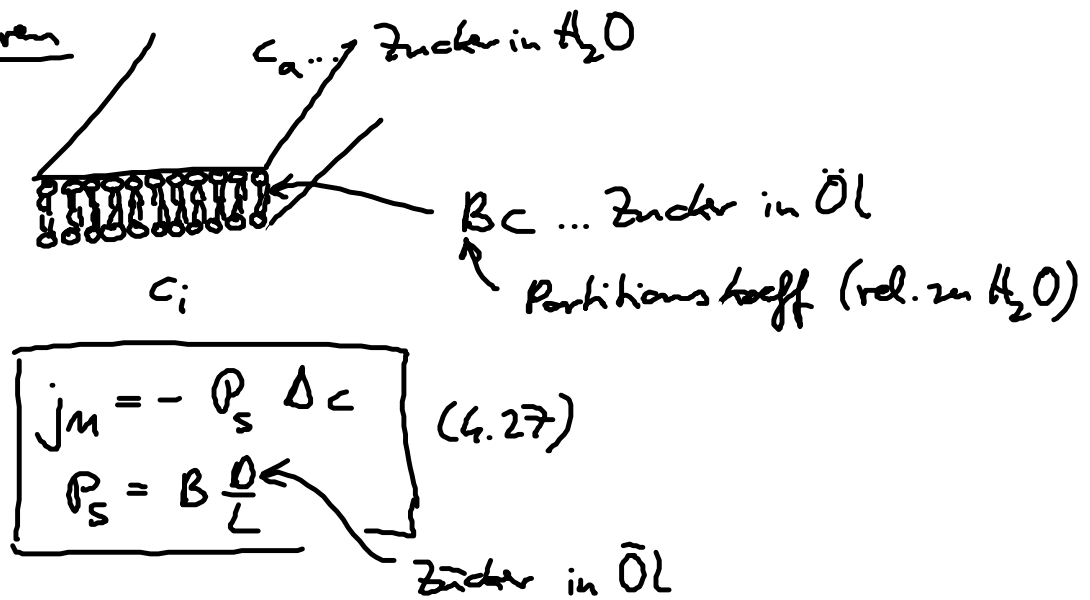 ren
c_a ... Zucker in H₂O
Bc ... Zucker in Öl
c_i
Partitionskoeff (rel. zu H₂O)
j_M = - P_s Δc
(4.27)
P_s = B D/L
Zucker in Öl